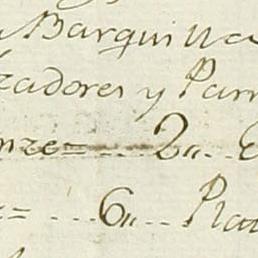 Barquilla
zadores y Parr
nze= ... 2,, ..
= ... 6,, .. Pla